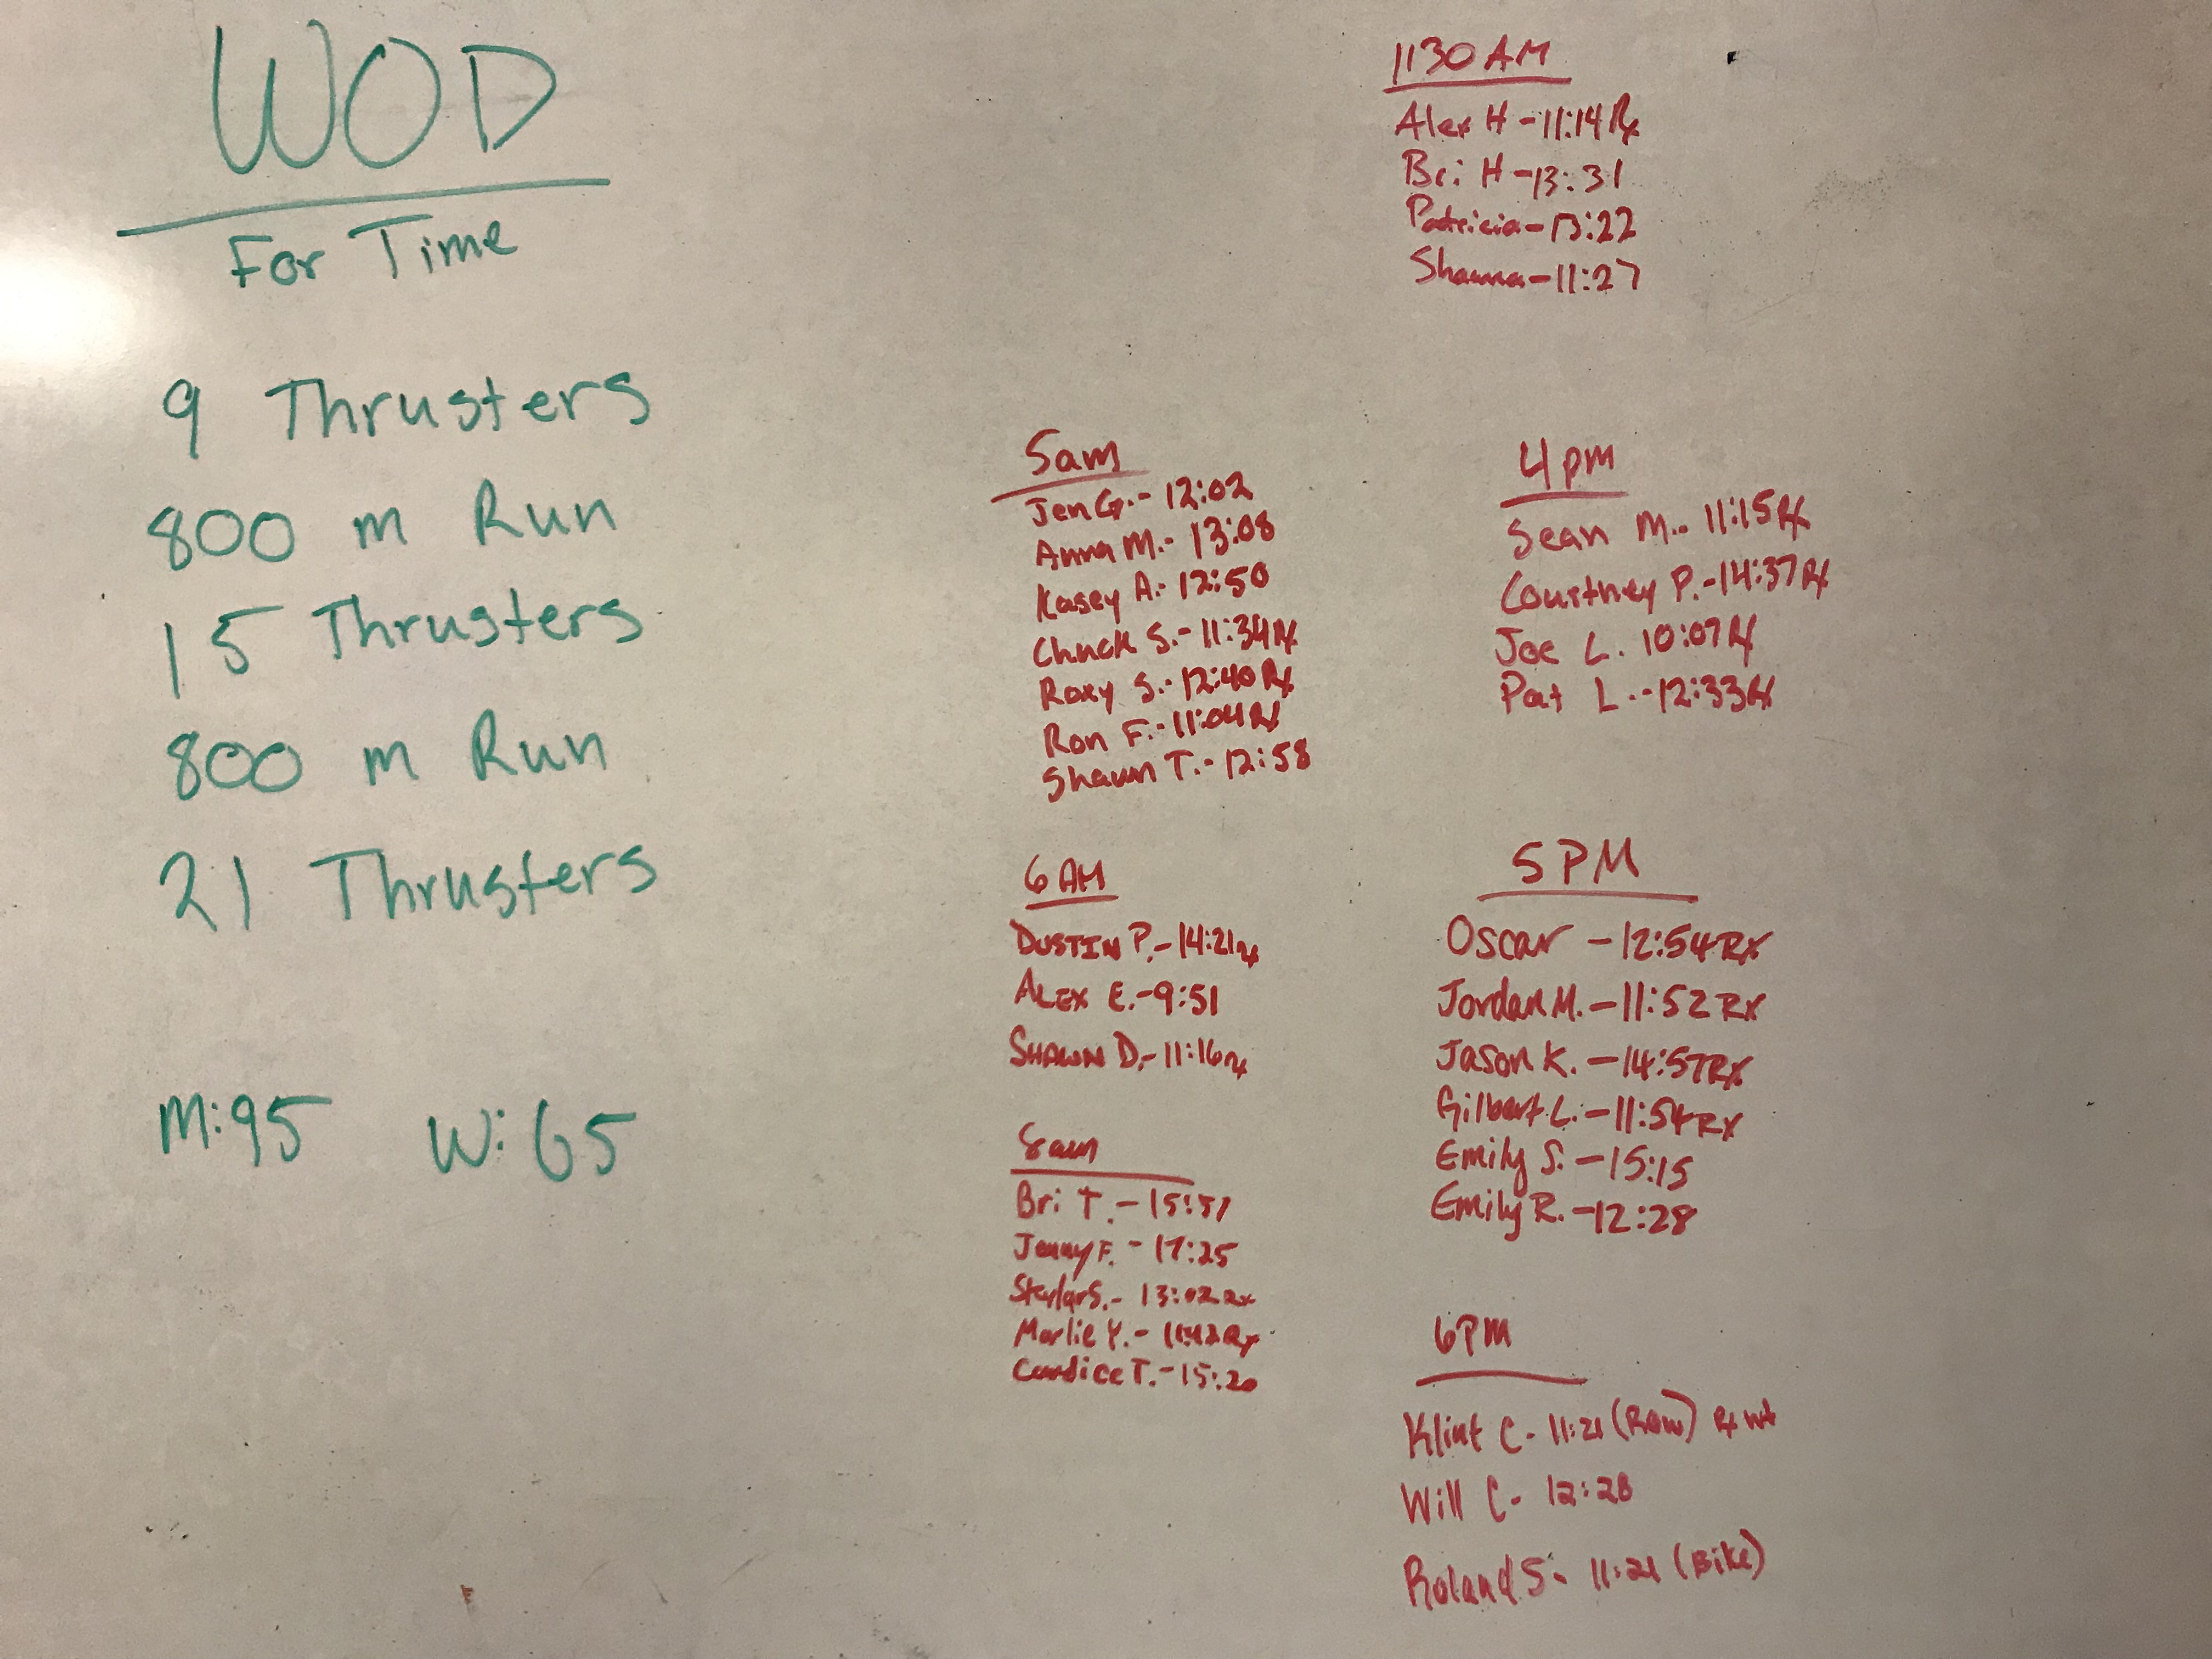 WOD
For Time
9 Thrusters
800 m Run
15 Thrusters
800 m Run
21 Thrusters
M:95 W:65
5am
Jen G.- 12:02
Anna M.- 13:08
Kasey A.- 12:50
Chuck S.- 11:34 Rx
Roxy S.- 12:40 Rx
Ron F.- 11:04 Rx
Shaun T.- 12:58
6 AM
DUSTIN P.-14:21 Rx
ALEX E.-9:51
SHAWN D.-11:16 Rx
8am
Bri T. -
Jenny F. - 17:25
Skylar S.- 13:02 Rx
Marlie Y.- 11:42 Rx
Candice T.-15:20
1130 AM
Alex H -11:14 Rx
Bri H -13:31
Patricia -13:22
Shauna -11:27
4 pm
Sean M.. 11:15 Rx
Courtney P.-14:37 Rx
Joe L. 10:07 Rx
Pat L.-12:33 Rx
5 PM
Oscar -12:54 Rx
Jordan M. -11:52 Rx
Jason K. -14:57 Rx
Gilbert L. -11:54 Rx
Emily S. -15:15
Emily R. -12:28
6PM
Klint C- 11:21 (Row) Rx wt
Will C- 12:28
Roland S- 11:21 (Bike)